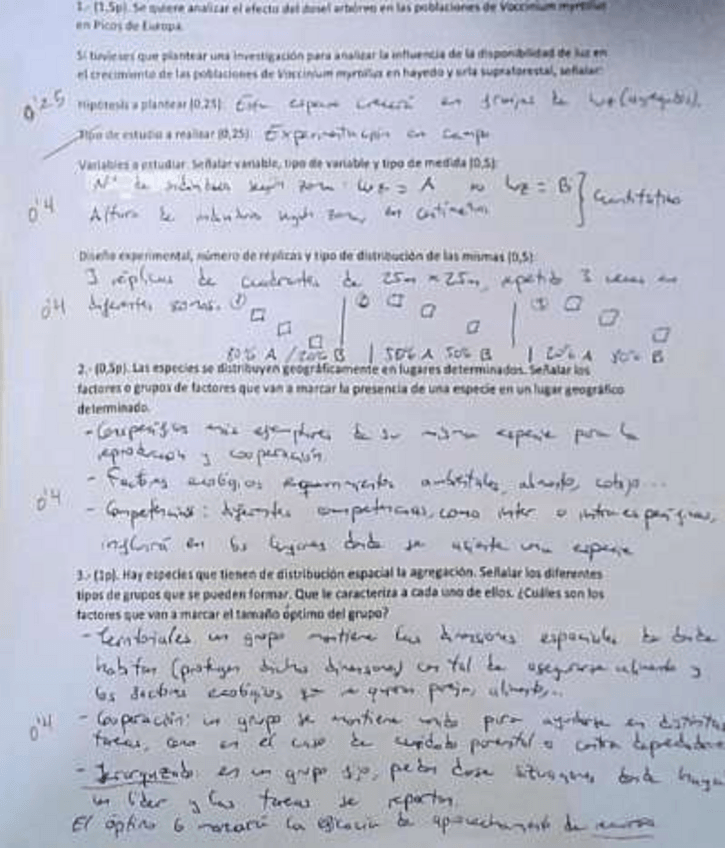 1.- (1,5p). Se quiere analizar el efecto del dosel arbóreo en las poblaciones de Vaccinium myrtillus
en Picos de Europa.
Si tuvieses que plantear una investigación para analizar la influencia de la disponibilidad de luz en
el crecimiento de las poblaciones de Vaccinium myrtillus en hayedo y orla supraforestal, señalar:
0'25 Hipótesis a plantear (0,25): Esta especie crecerá en franjas de luz
Tipo de estudio a realizar (0,25): Experimentación en campo
Variables a estudiar. Señalar variable, tipo de variable y tipo de medida (0,5):
Nº de individuos según zona luz = A no luz = B
0'4 Altura de individuos según zona, en centímetros } Cuantitativo
Diseño experimental, número de réplicas y tipo de distribución de las mismas (0,5):
3 réplicas de cuadrantes de 25m x 25m, repetido 3 veces en
0'4 diferentes zonas. ① ②
80% A / 20% B | 50% A 50% B | 20% A 80% B
2.- (0,5p). Las especies se distribuyen geográficamente en lugares determinados. Señalar los
factores o grupos de factores que van a marcar la presencia de una especie en un lugar geográfico
determinado.
- más ejemplares de su misma especie para la
reproducción y cooperación
- Factores ecológicos requerimientos ambientales, alimento, cobijo...
0'4 - Competencias: diferentes competencias, como inter o intraespecíficas,
influirá en los lugares donde se asiente una especie
3.- (1p). Hay especies que tienen de distribución espacial la agregación. Señalar los diferentes
tipos de grupos que se pueden formar. Que le caracteriza a cada uno de ellos. ¿Cuáles son los
factores que van a marcar el tamaño óptimo del grupo?
- Territoriales un grupo mantiene las dimensiones espaciales de donde
habitan (protegen dichas dimensiones) con tal de asegurarse alimento y
los factores ecológicos que
0'4 - Cooperación: un grupo se mantiene unido para ayudarse en distintas
tareas, como en el caso de cuidado parental o contra depredadores
- Jerarquizado: es un grupo fijo, pueden darse situaciones donde haya
un líder y las tareas se reparten.
El óptimo lo marcará la eficacia de aprovechamiento de recursos